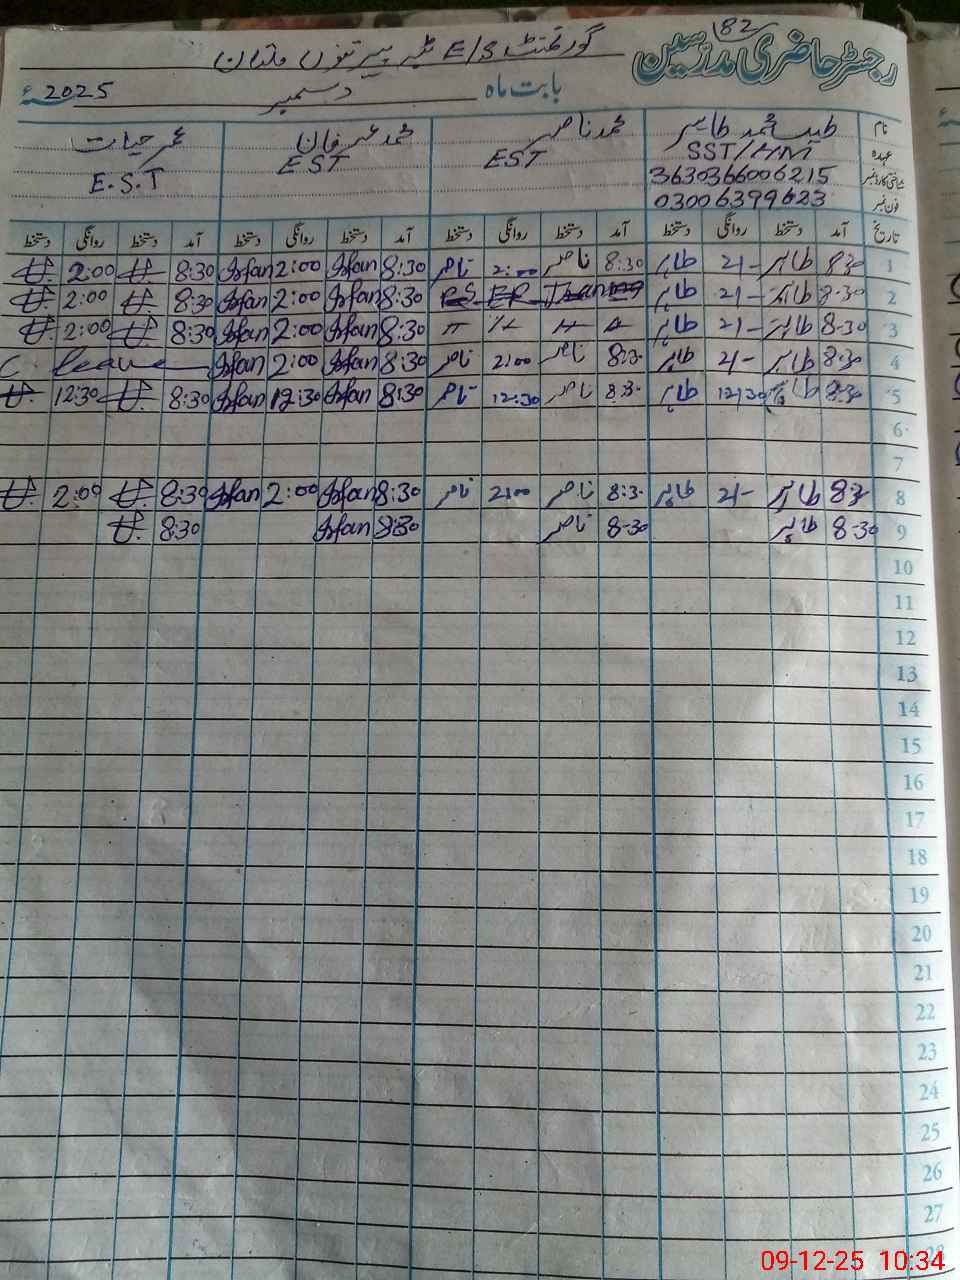 82
رجسٹر حاضری مدرسین
گورنمنٹ E/S
بابت ماہ دسمبر 2025ء
نام محمد طاہر محمد ناصر محمد عرفان عمر حیات
عہدہ SST/HM EST EST E.S.T
شناختی کارڈ نمبر 3630366006215
فون نمبر 03006399623
تاریخ آمد دستخط روانگی دستخط آمد دستخط روانگی دستخط آمد دستخط روانگی دستخط آمد دستخط روانگی دستخط
1 8:30 طاہر 2/- طاہر 8:30 ناصر 2:00 ناصر 8:30 Irfan 2:00 Irfan 8:30 2:00
2 8-30 طاہر 2/- طاہر 8:30 Irfan 2:00 Irfan 8:30 2:00
3 8-30 طاہر 2/- طاہر 8:30 Irfan 2:00 Irfan 8:30 2:00
4 8-30 طاہر 2/- طاہر 8:30 ناصر 2:00 ناصر 8:30 Irfan 2:00 Irfan C. leave
5 8-30 طاہر 12/30 طاہر 8:30 ناصر 12:30 ناصر 8:30 Irfan 12:30 Irfan 8:30 12:30
6
7
8 8:30 طاہر 2/- طاہر 8:30 ناصر 2:00 ناصر 8:30 Irfan 2:00 Irfan 8:30 2:00
9 8-30 طاہر 8-30 ناصر 8:30 Irfan 8:30
10
11
12
13
14
15
16
17
18
19
20
21
22
23
24
25
26
27
28
09-12-25 10:34